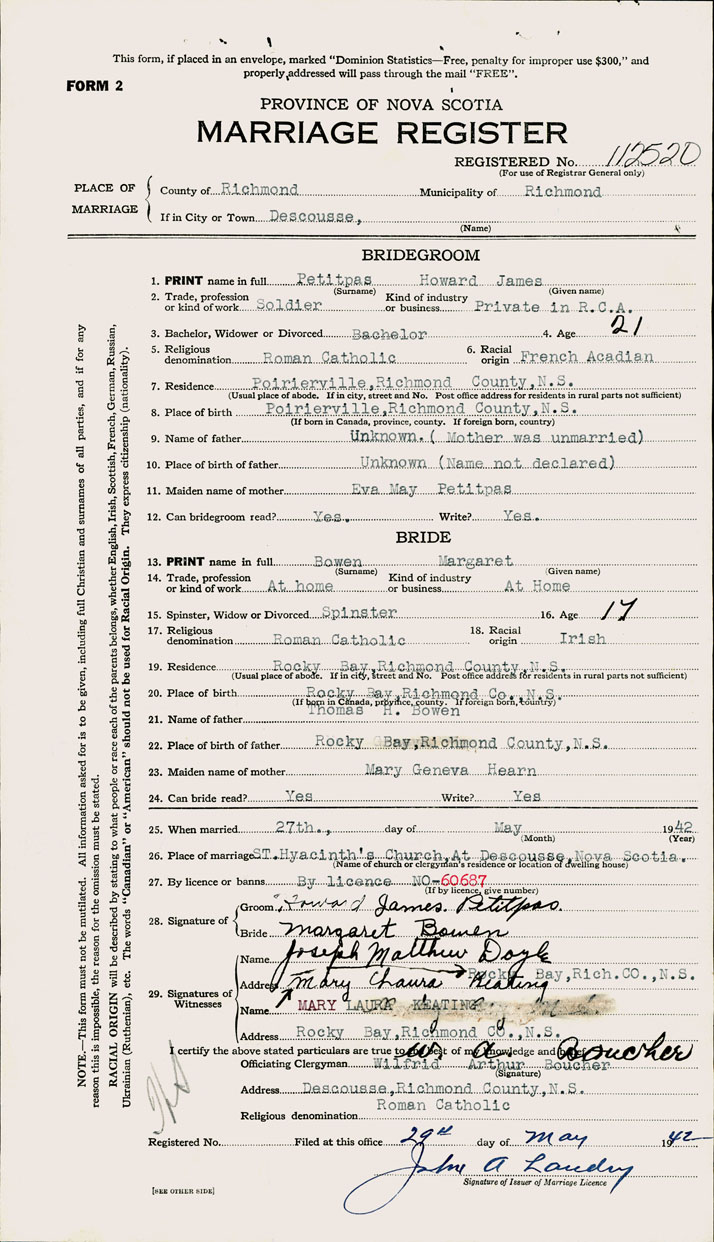 This form, if placed in an envelope, marked "Dominion Statistics—Free, penalty for improper use $300," and
properly addressed will pass through the mail "FREE".
FORM 2
PROVINCE OF NOVA SCOTIA
MARRIAGE REGISTER
REGISTERED No. 112520
(For use of Registrar General only)
PLACE OF MARRIAGE
County of Richmond Municipality of Richmond
If in City or Town Descousse,
(Name)
BRIDEGROOM
1. PRINT name in full Petitpas Howard James
(Surname) (Given name)
2. Trade, profession or kind of work Soldier Kind of industry or business Private in R.C.A.
3. Bachelor, Widower or Divorced Bachelor 4. Age 21
5. Religious denomination Roman Catholic 6. Racial origin French Acadian
7. Residence Poirierville,Richmond County,N.S.
(Usual place of abode. If in city, street and No. Post office address for residents in rural parts not sufficient)
8. Place of birth Poirierville,Richmond County,N.S.
(If born in Canada, province, county. If foreign born, country)
9. Name of father Unknown. ( Mother was unmarried)
10. Place of birth of father Unknown (Name not declared)
11. Maiden name of mother Eva May Petitpas
12. Can bridegroom read? Yes. Write? Yes.
BRIDE
13. PRINT name in full Bowen Margaret
(Surname) (Given name)
14. Trade, profession or kind of work At home Kind of industry or business At Home
15. Spinster, Widow or Divorced Spinster 16. Age 17
17. Religious denomination Roman Catholic 18. Racial origin Irish
19. Residence Rocky Bay,Richmond County,N.S.
(Usual place of abode. If in city, street and No. Post office address for residents in rural parts not sufficient)
20. Place of birth Rocky Bay,Richmond Co., N.S.
(If born in Canada, province, county. If foreign born, country)
21. Name of father Thomas H. Bowen
22. Place of birth of father Rocky Bay,Richmond County,N.S.
23. Maiden name of mother Mary Geneva Hearn
24. Can bride read? Yes Write? Yes
25. When married 27th., day of May 1942
(Month) (Year)
26. Place of marriage ST.Hyacinth's Church,At Descousse,Nova Scotia.
(Name of church or clergyman's residence or location of dwelling house)
27. By licence or banns By licence NO-60687
(If by licence, give number)
28. Signature of
Groom Howard James Petitpas.
Bride Margaret Bowen
29. Signatures of Witnesses
Name Joseph Matthew Doyle
Address Rocky Bay,Rich.CO.,N.S.
Mary Laura Keating
Name MARY LAURA KEATING
Address Rocky Bay,Richmond CO.,N.S.
I certify the above stated particulars are true to the best of my knowledge and belief
W. A. Boucher
Officiating Clergyman Wilfrid Arthur Boucher
(Signature)
Address Descousse,Richmond County,N.S.
Religious denomination Roman Catholic
Registered No. Filed at this office 29th day of May 1942
John A Landry
Signature of Issuer of Marriage Licence
[SEE OTHER SIDE]
NOTE.—This form must not be mutilated. All information asked for is to be given, including full Christian and surnames of all parties, and if for any
reason this is impossible, the reason for the omission must be stated.
RACIAL ORIGIN will be described by stating to what people or race each of the parents belongs, whether English, Irish, Scottish, French, German, Russian,
Ukrainian (Ruthenian), etc. The words "Canadian" or "American" should not be used for Racial Origin. They express citizenship (nationality).